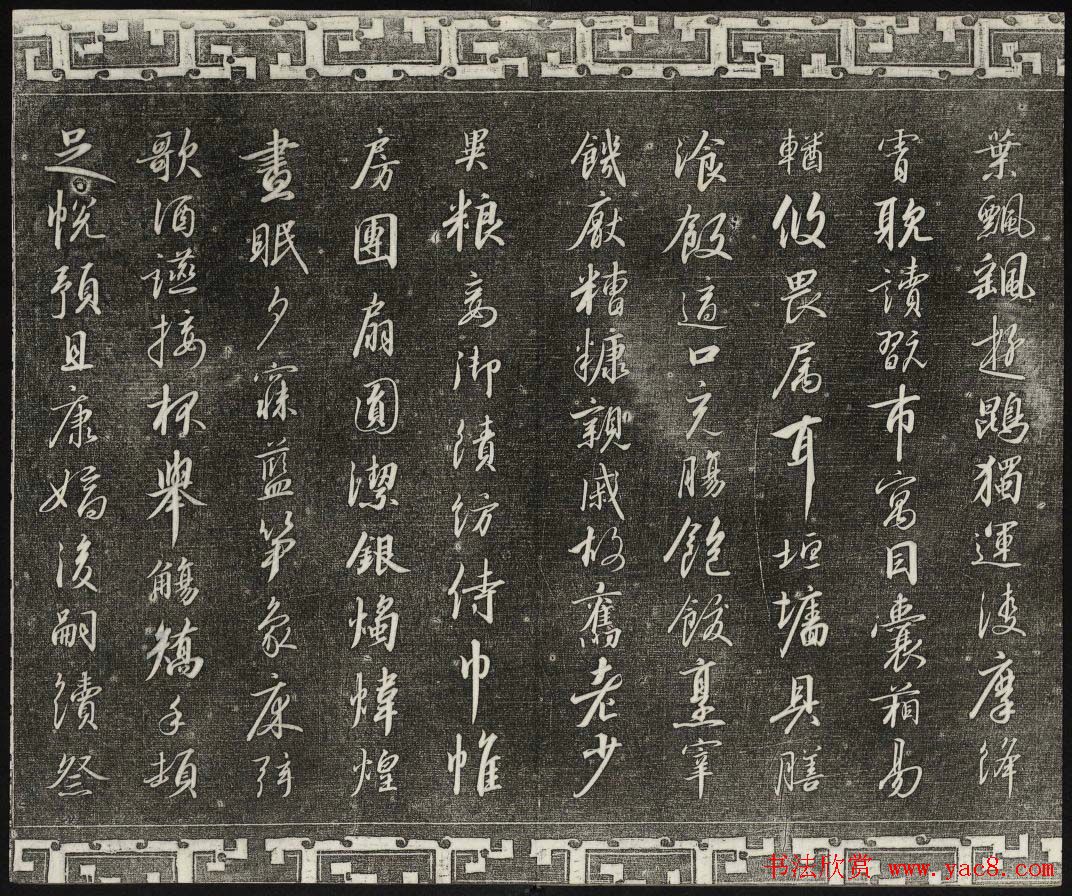 葉飄颻遊鵾獨運淩摩絳
霄耽讀翫市寓目囊箱易
輶攸畏属耳垣墻具膳
湌飯適口充腸飽飫烹宰
饑厭糟糠親戚故舊老少
異粮妾御績紡侍巾帷
房團扇圓潔銀燭煒煌
晝眠夕寐藍笋象床弦
歌酒讌接杯舉觴矯手頓
足悅預且康嫡後嗣續祭
书法欣赏 www.yac8.com